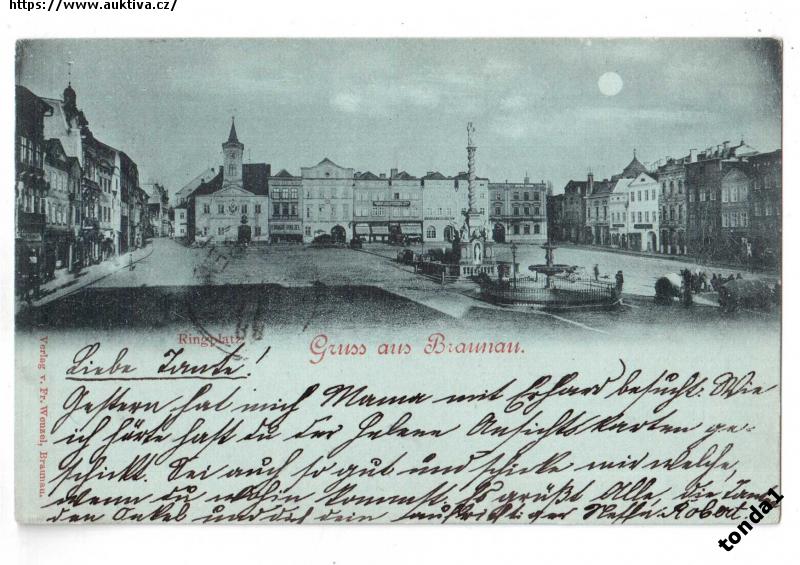 https://www.auktiva.cz/
Ringplatz
Gruss aus Braunau.
Verlag v. Fr. Wenzel, Braunau.
Liebe Tante!
Gestern hat mich Mama mit Erhard besucht. Wie
ich hörte hast du der Helene Ansichtskarten ge-
schickt. Sei auch so gut und schicke mir welche,
wenn du wohin kommst. Es grüßt Alle, die Tan
den Onkel und dich dein aufrichtiger Neffe Robert.
tonda1